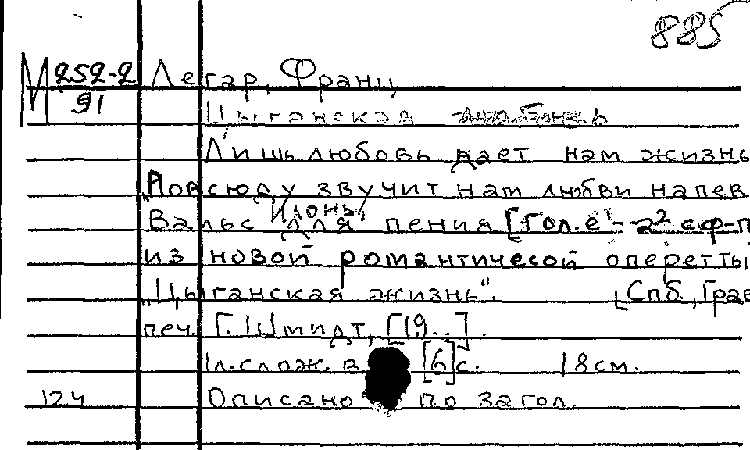 885
М 252-2 Легар, Франц
91
Цыганская любовь
Лишь любовь дает нам жизнь
"Повсюду звучит нам любви напев
Вальс Илоны для пения [Гол. е'-а² с ф-п
из новой романтической оперетты
"Цыганская жизнь". [Спб, Грав
печ. Г. Шмидт, [19..].
1 л. слож. в [6] с. 18 см.
124 Описано по загол.